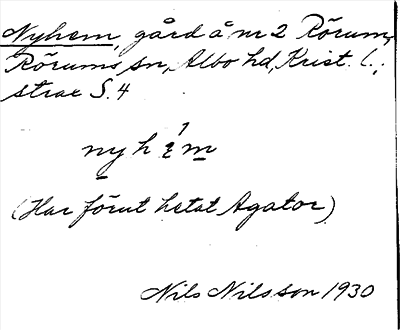 Nyhem, gård å nr 2 Rörum,
Rörums sn, Albo hd, Krist. l.;
strac S. 4
nyhem
(Har förut hetat Agator)
Nils Nilsson 1930